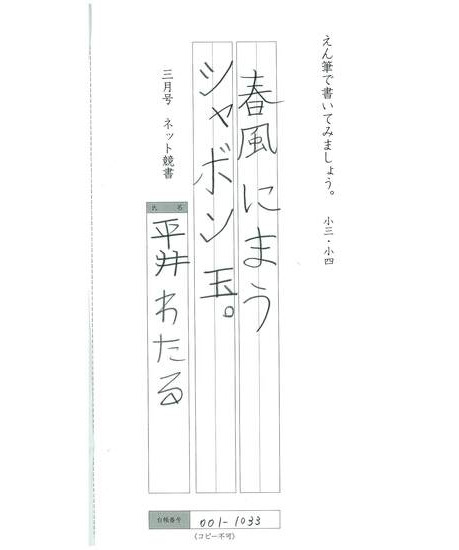 えん筆で書いてみましょう。 小三・小四
春風にまう
シャボン玉。
三月号 ネット競書
氏 名
平井わたる
台帳番号 001-1033
《コピー不可》